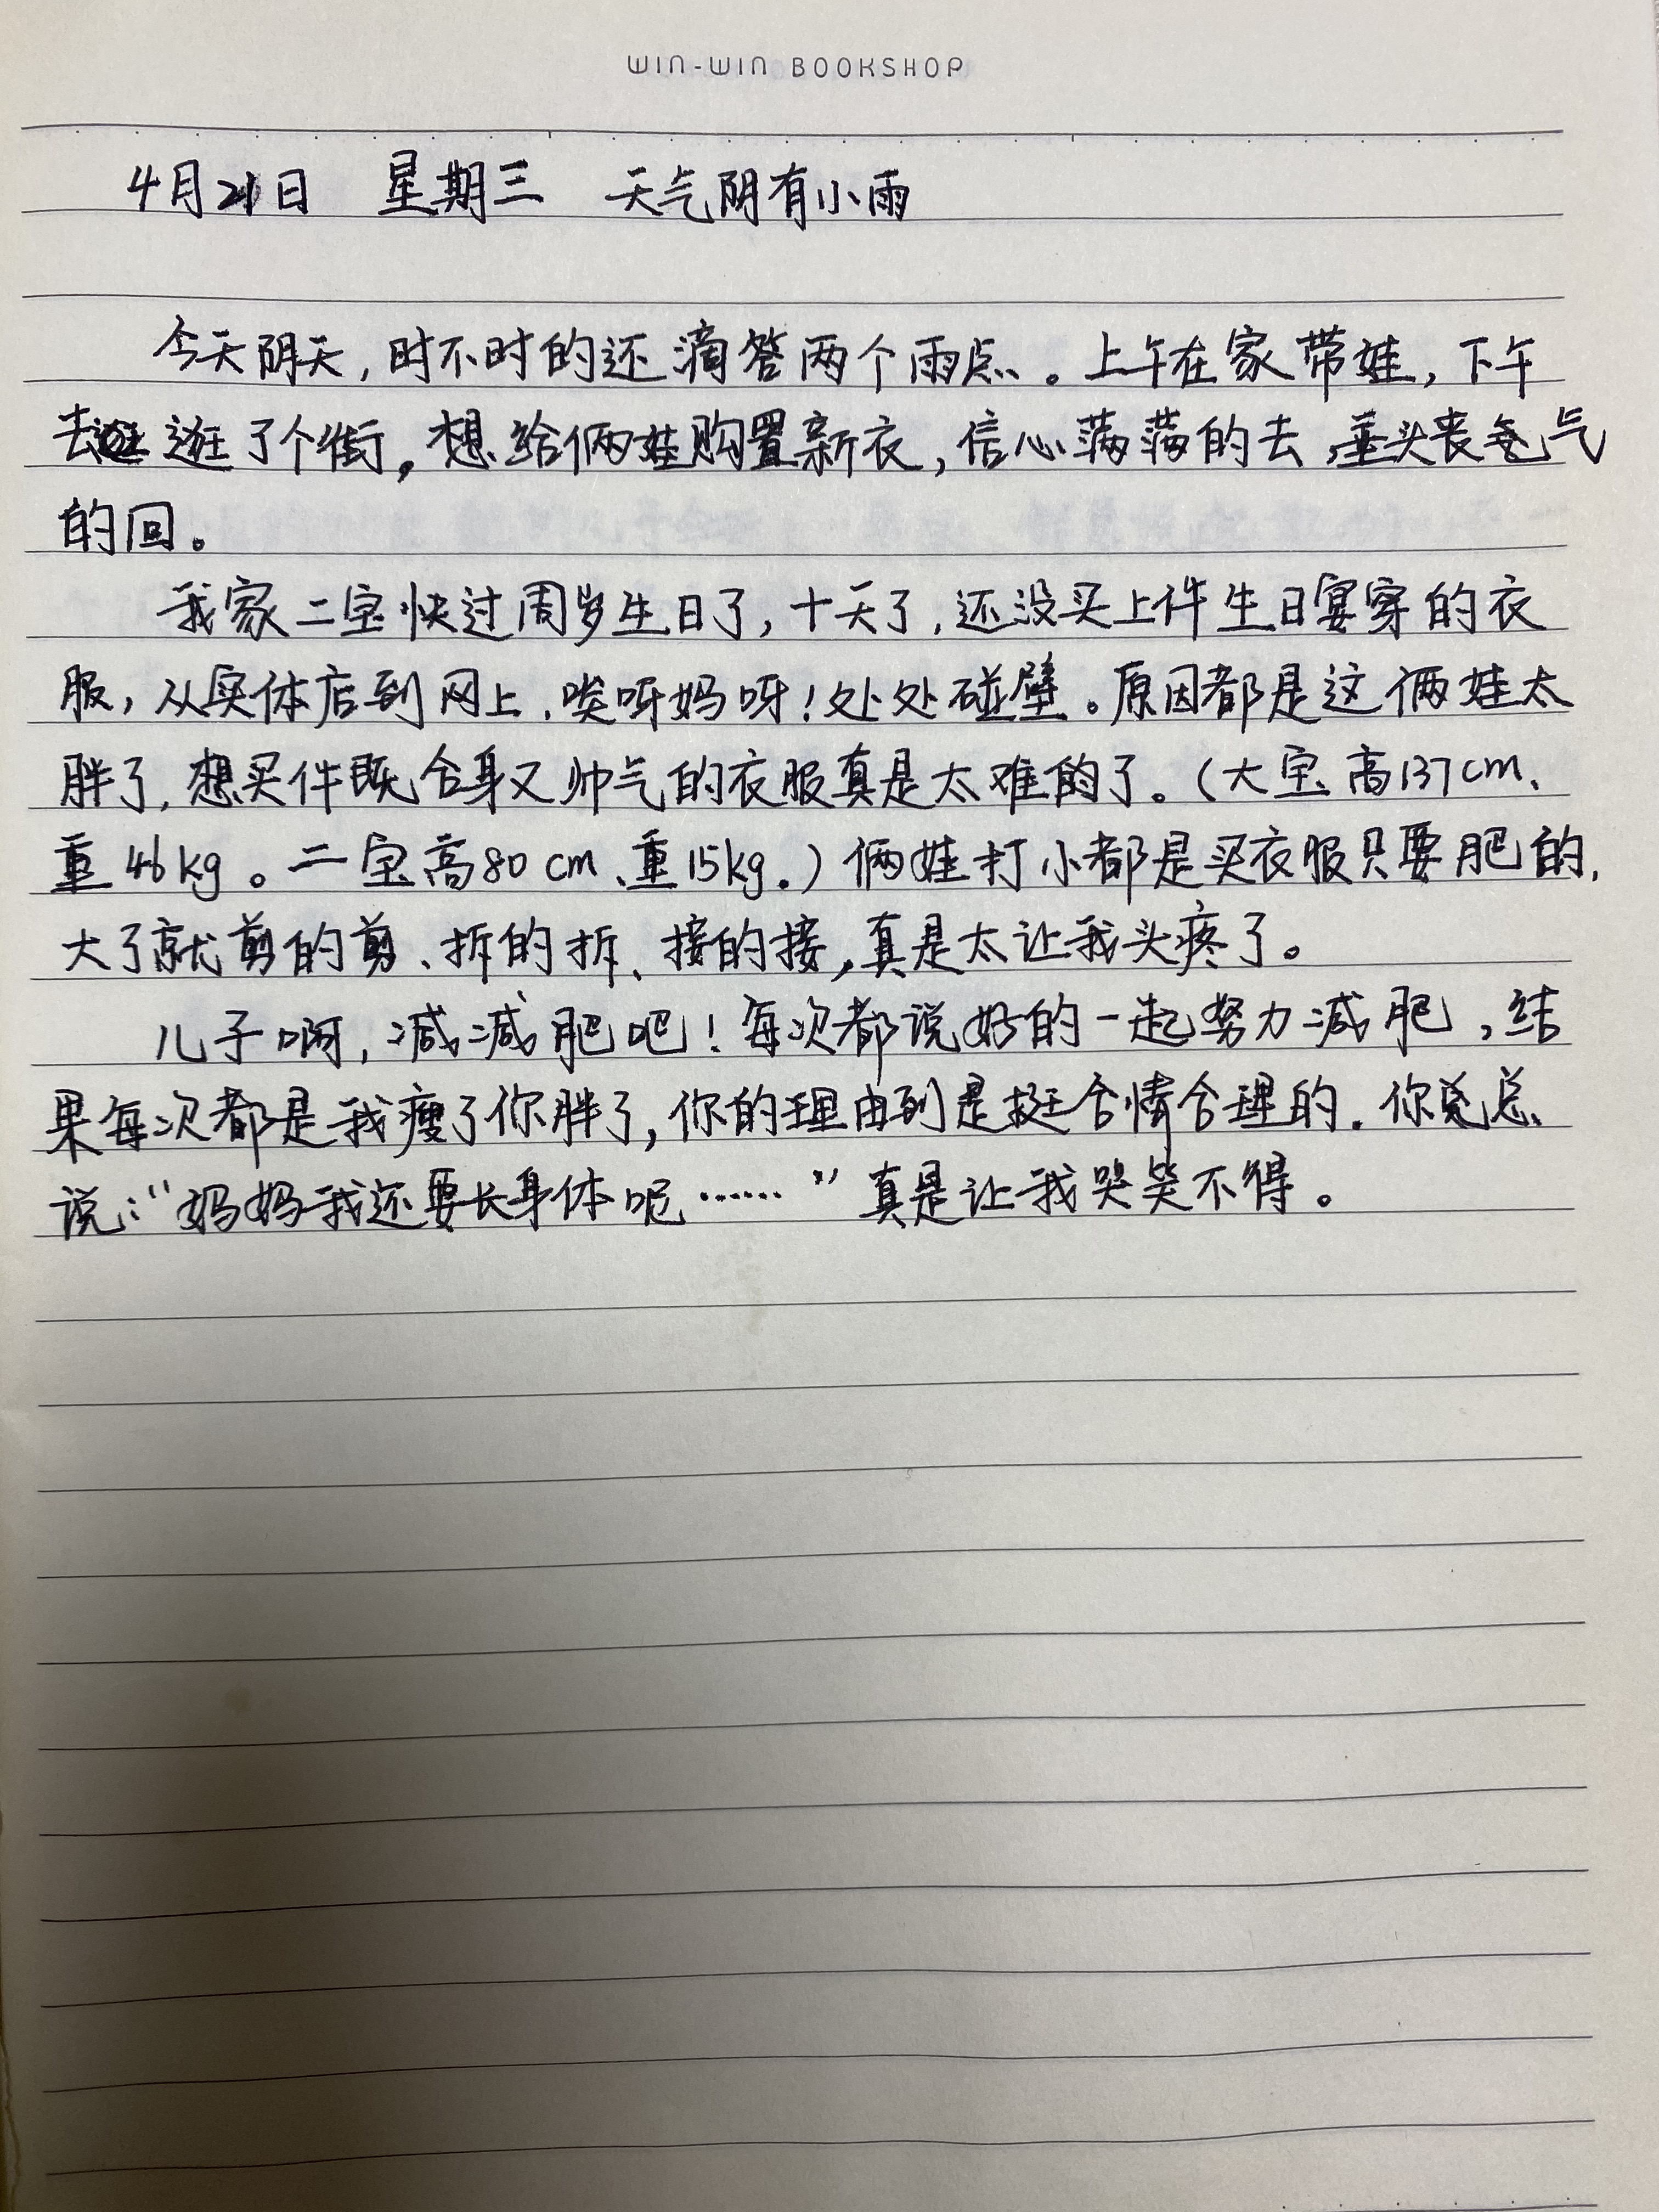 WIN-WIN BOOKSHOP
4月21日 星期三 天气阴有小雨
今天阴天,时不时的还滴答两个雨点。上午在家带娃,下午
去逛了个街。想给俩娃购置新衣,信心满满的去,垂头丧气
的回。
我家二宝快过周岁生日了,十天了,还没买上件生日宴穿的衣
服,从实体店到网上,唉呀妈呀!处处碰壁。原因都是这俩娃太
胖了,想买件既合身又帅气的衣服真是太难的了。(大宝高137cm、
重46kg。二宝高80cm、重15kg。)俩娃打小都是买衣服只要肥的,
大了就剪的剪、拆的拆、接的接,真是太让我头疼了。
儿子啊,减减肥吧!每次都说好的一起努力减肥,结
果每次都是我瘦了你胖了,你的理由到是挺合情合理的。你总
说:“妈妈我还要长身体呢……”真是让我哭笑不得。